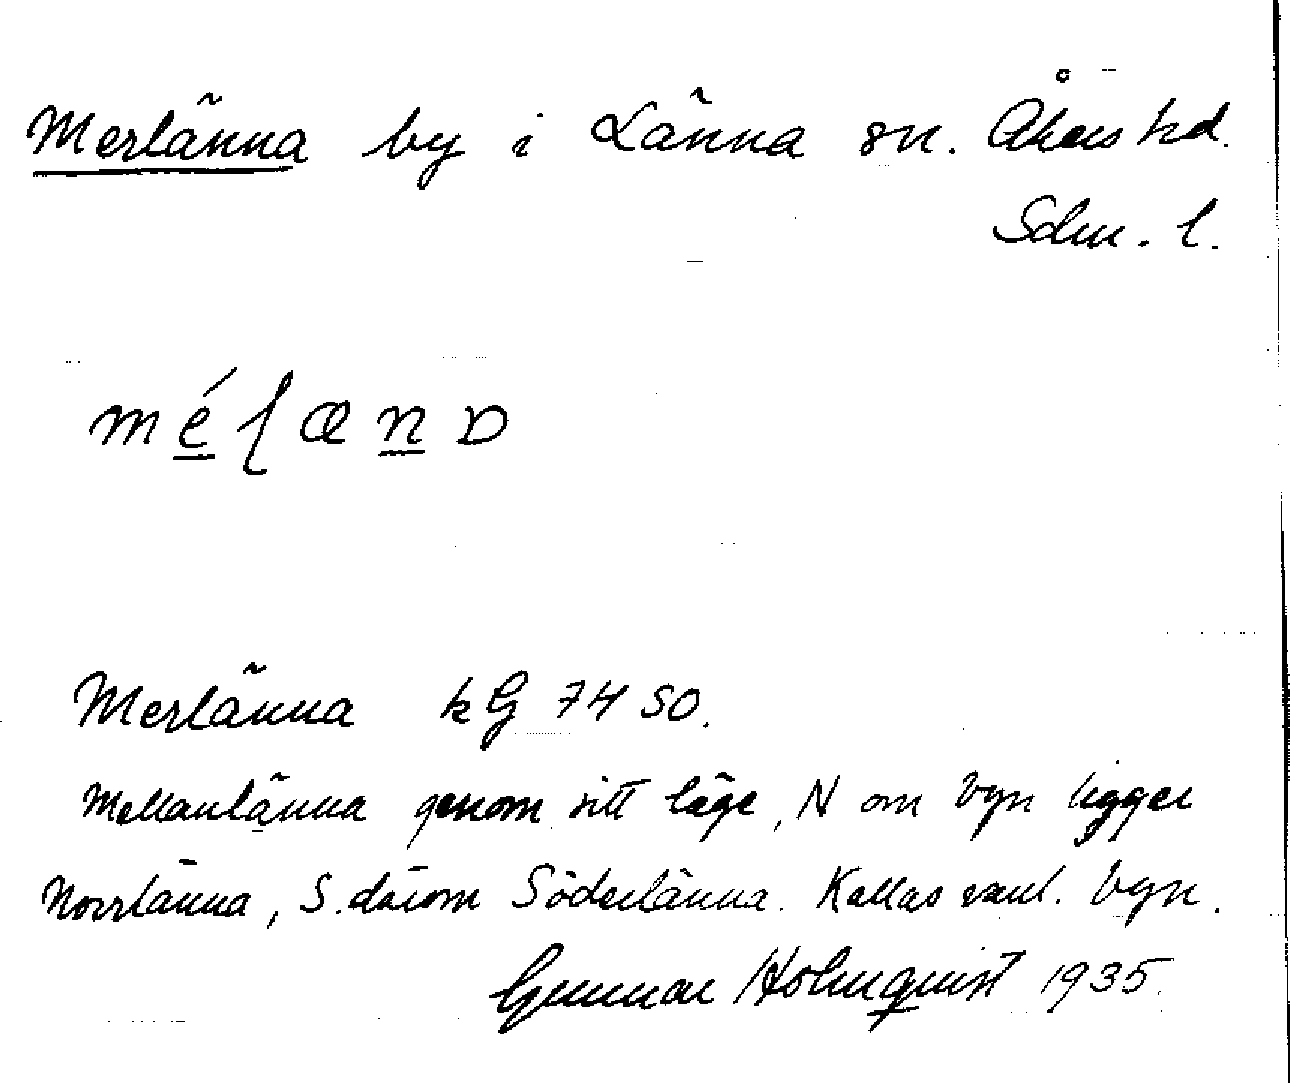 Merlänna by i Länna sn. Åkers hd.
Sdm. l.
Merlänna kG 7450.
Mellanlänna genom sitt läge, N om byn ligger
Norrlänna, S. därom Söderlänna. Kallas vanl. byn.
Gunnar Holmquist 1935.